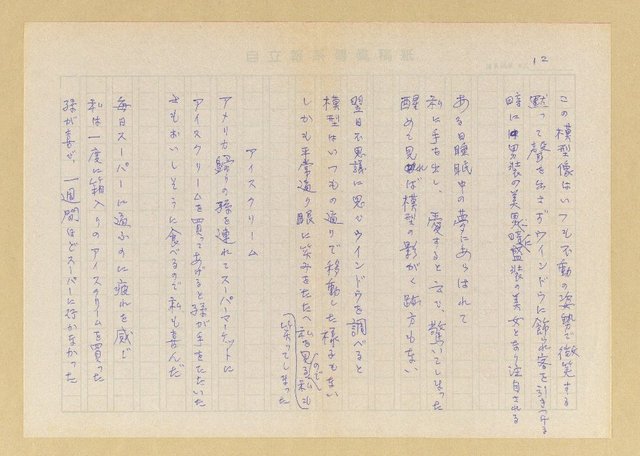 12
この模型像はいつも不動の姿勢で微笑する
黙って聲を出さずウインドウに飾れ客を引きつける
時に男装の美男に盛装の美女となり注目される
ある日睡眠中の夢にあらはれて
私に手を出し、愛すると云て、驚いてしまった
醒めて見れば模型の影がく跡方もない
翌日不思議に思ひウインドウを調べると
模型はいつもの通りで移動した様子もない
しかも平常通り眼に笑みをたたへ私を見るので私も
笑ってしまった
アイスクリーム
アメリカ歸りの孫を連れてスーパーマーケットに
アイスクリームを買ってあげると孫が手をたたいた
さもおいしそうに食べるので私も喜んだ
毎日スーパーに通ふのに疲れを感じ
私は一度に箱入りのアイスクリームを買った
孫が喜び、一週間ほどスーパーに行かなかった